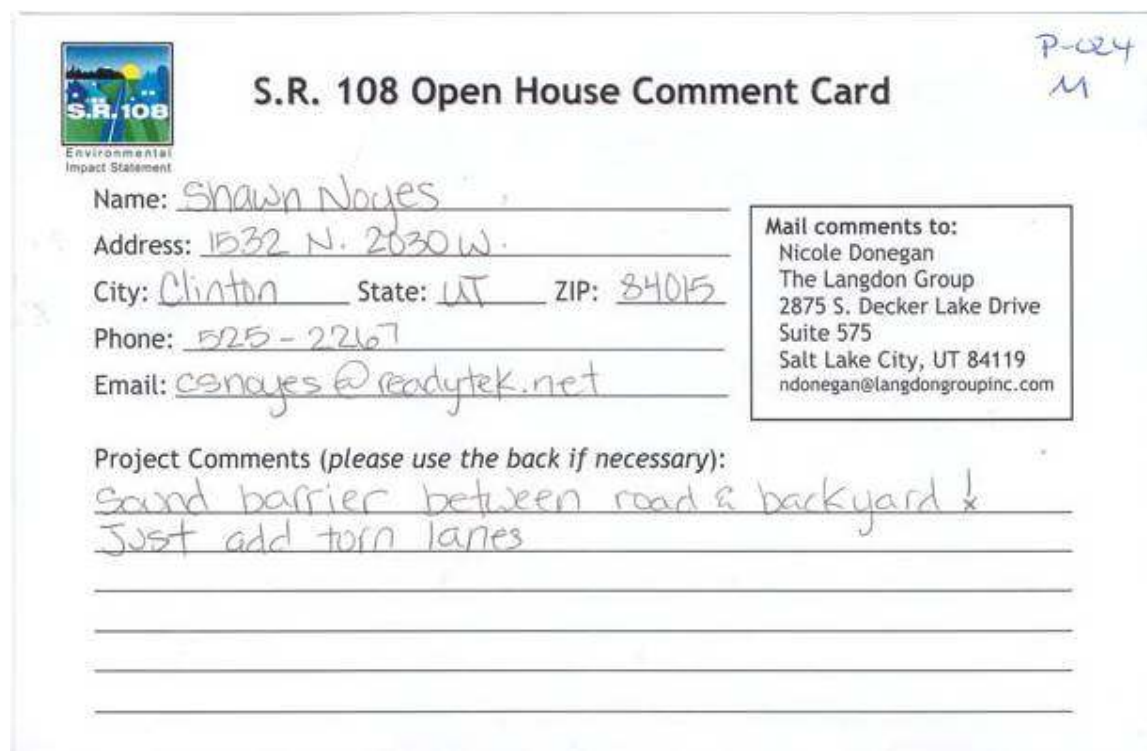 P-024
M
S.R. 108
Environmental
Impact Statement
S.R. 108 Open House Comment Card
Name: Shawn Noyes
Address: 1532 N. 2030 W.
City: Clinton State: UT ZIP: 84015
Phone: 525-2267
Email: csnoyes@readytek.net
Mail comments to:
Nicole Donegan
The Langdon Group
2875 S. Decker Lake Drive
Suite 575
Salt Lake City, UT 84119
ndonegan@langdongroupinc.com
Project Comments (please use the back if necessary):
Sound barrier between road & backyard &
Just add torn lanes